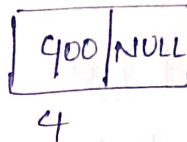 900 NULL
4